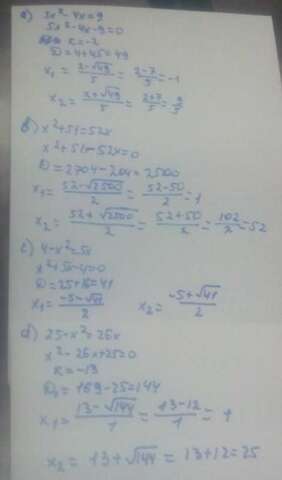 a) 5x² - 4x = 9
5x² - 4x - 9 = 0
k = -2
D = 4 + 45 = 49
x₁ = (2 - √49)/5 = (2 - 7)/5 = -1
x₂ = (2 + √49)/5 = (2 + 7)/5 = 9/5
b) x² + 51 = 52x
x² + 51 - 52x = 0
D = 2704 - 204 = 2500
x₁ = (52 - √2500)/2 = (52 - 50)/2 = 1
x₂ = (52 + √2500)/2 = (52 + 50)/2 = 102/2 = 52
c) 4 - x² = 5x
x² + 5x - 4 = 0
D = 25 + 16 = 41
x₁ = (-5 - √41)/2 x₂ = (-5 + √41)/2
d) 25 - x² = 26x
x² - 26x + 25 = 0
k = -13
D₁ = 169 - 25 = 144
x₁ = (13 - √144)/1 = (13 - 12)/1 = 1
x₂ = 13 + √144 = 13 + 12 = 25